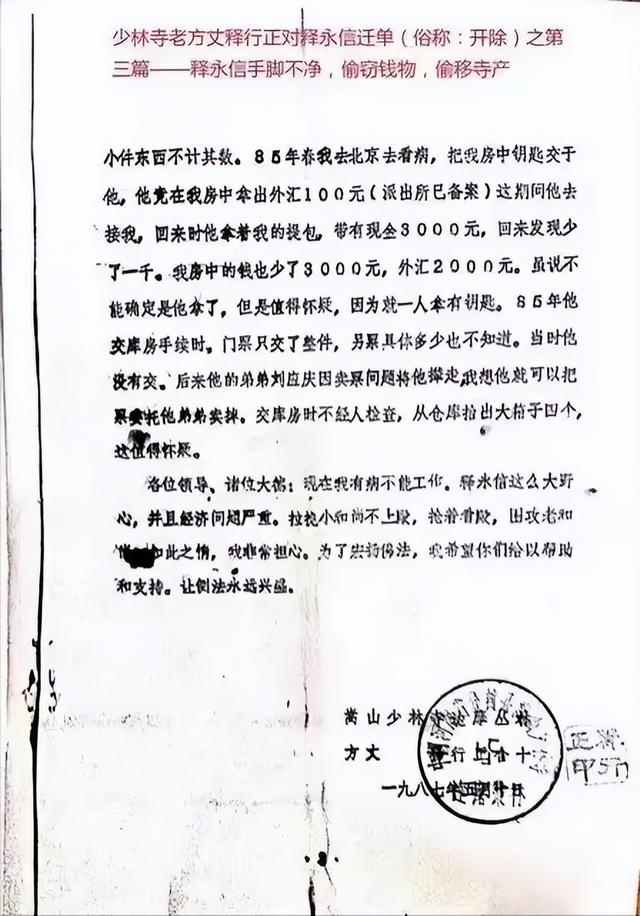 少林寺老方丈释行正对释永信迁单（俗称：开除）之第
三篇——释永信手脚不净，偷窃钱物，偷移寺产
小件东西不计其数。85年春我去北京去看病，把我房中钥匙交于
他，他竟在我房中拿出外汇100元（派出所已备案）这期间他去
接我，回来时他拿着我的提包，带有现金3000元，回来发现少
了一千。我房中的钱也少了3000元，外汇2000元。虽说不
能确定是他拿了，但是值得怀疑，因为就一人拿有钥匙。85年他
交库房手续时。门票只交了整件，另票具体多少也不知道。当时他
没有交。后来他的弟弟刘应庆因卖票问题将他撵走，我想他就可以把
票委托他弟弟卖掉。交库房时不经人检查，从仓库抬出大箱子四个，
这值得怀疑。
各位领导、诸位大德：现在我有病不能工作。释永信这么大野
心，并且经济问题严重。拉拢小和尚不上殿，抢着看殿，围攻老和
如此之情，我非常担心。为了宏扬佛法，我希望你们给以帮助
和支持。让佛法永远兴盛。
嵩山少林寺
方丈 行正
一九八七年